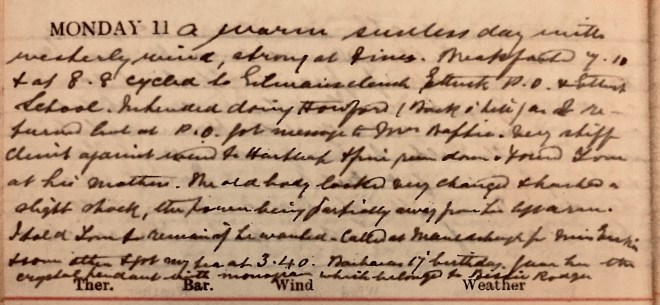 MONDAY 11 A warm sunless day with
westerly wind, strong at times. Breakfasted 7.10
& at 8.8 cycled to Ettrick P.O. &
School. Intended doing Howford as I re-
turned but at P.O. got message to Mrs very stiff
climb against wind to Hartleap & fine run down. Found Tom
at his mothers. The old body looked very changed & has had a
slight shock, the power being partially away from her
I told Tom to remain if he wanted. Called at for Miss
& some other & got my tea at 3.40. Barbaras 17th birthday. Gave her the
crystal pendant with monogram which belonged to Bessie Rodger
Ther. Bar. Wind Weather